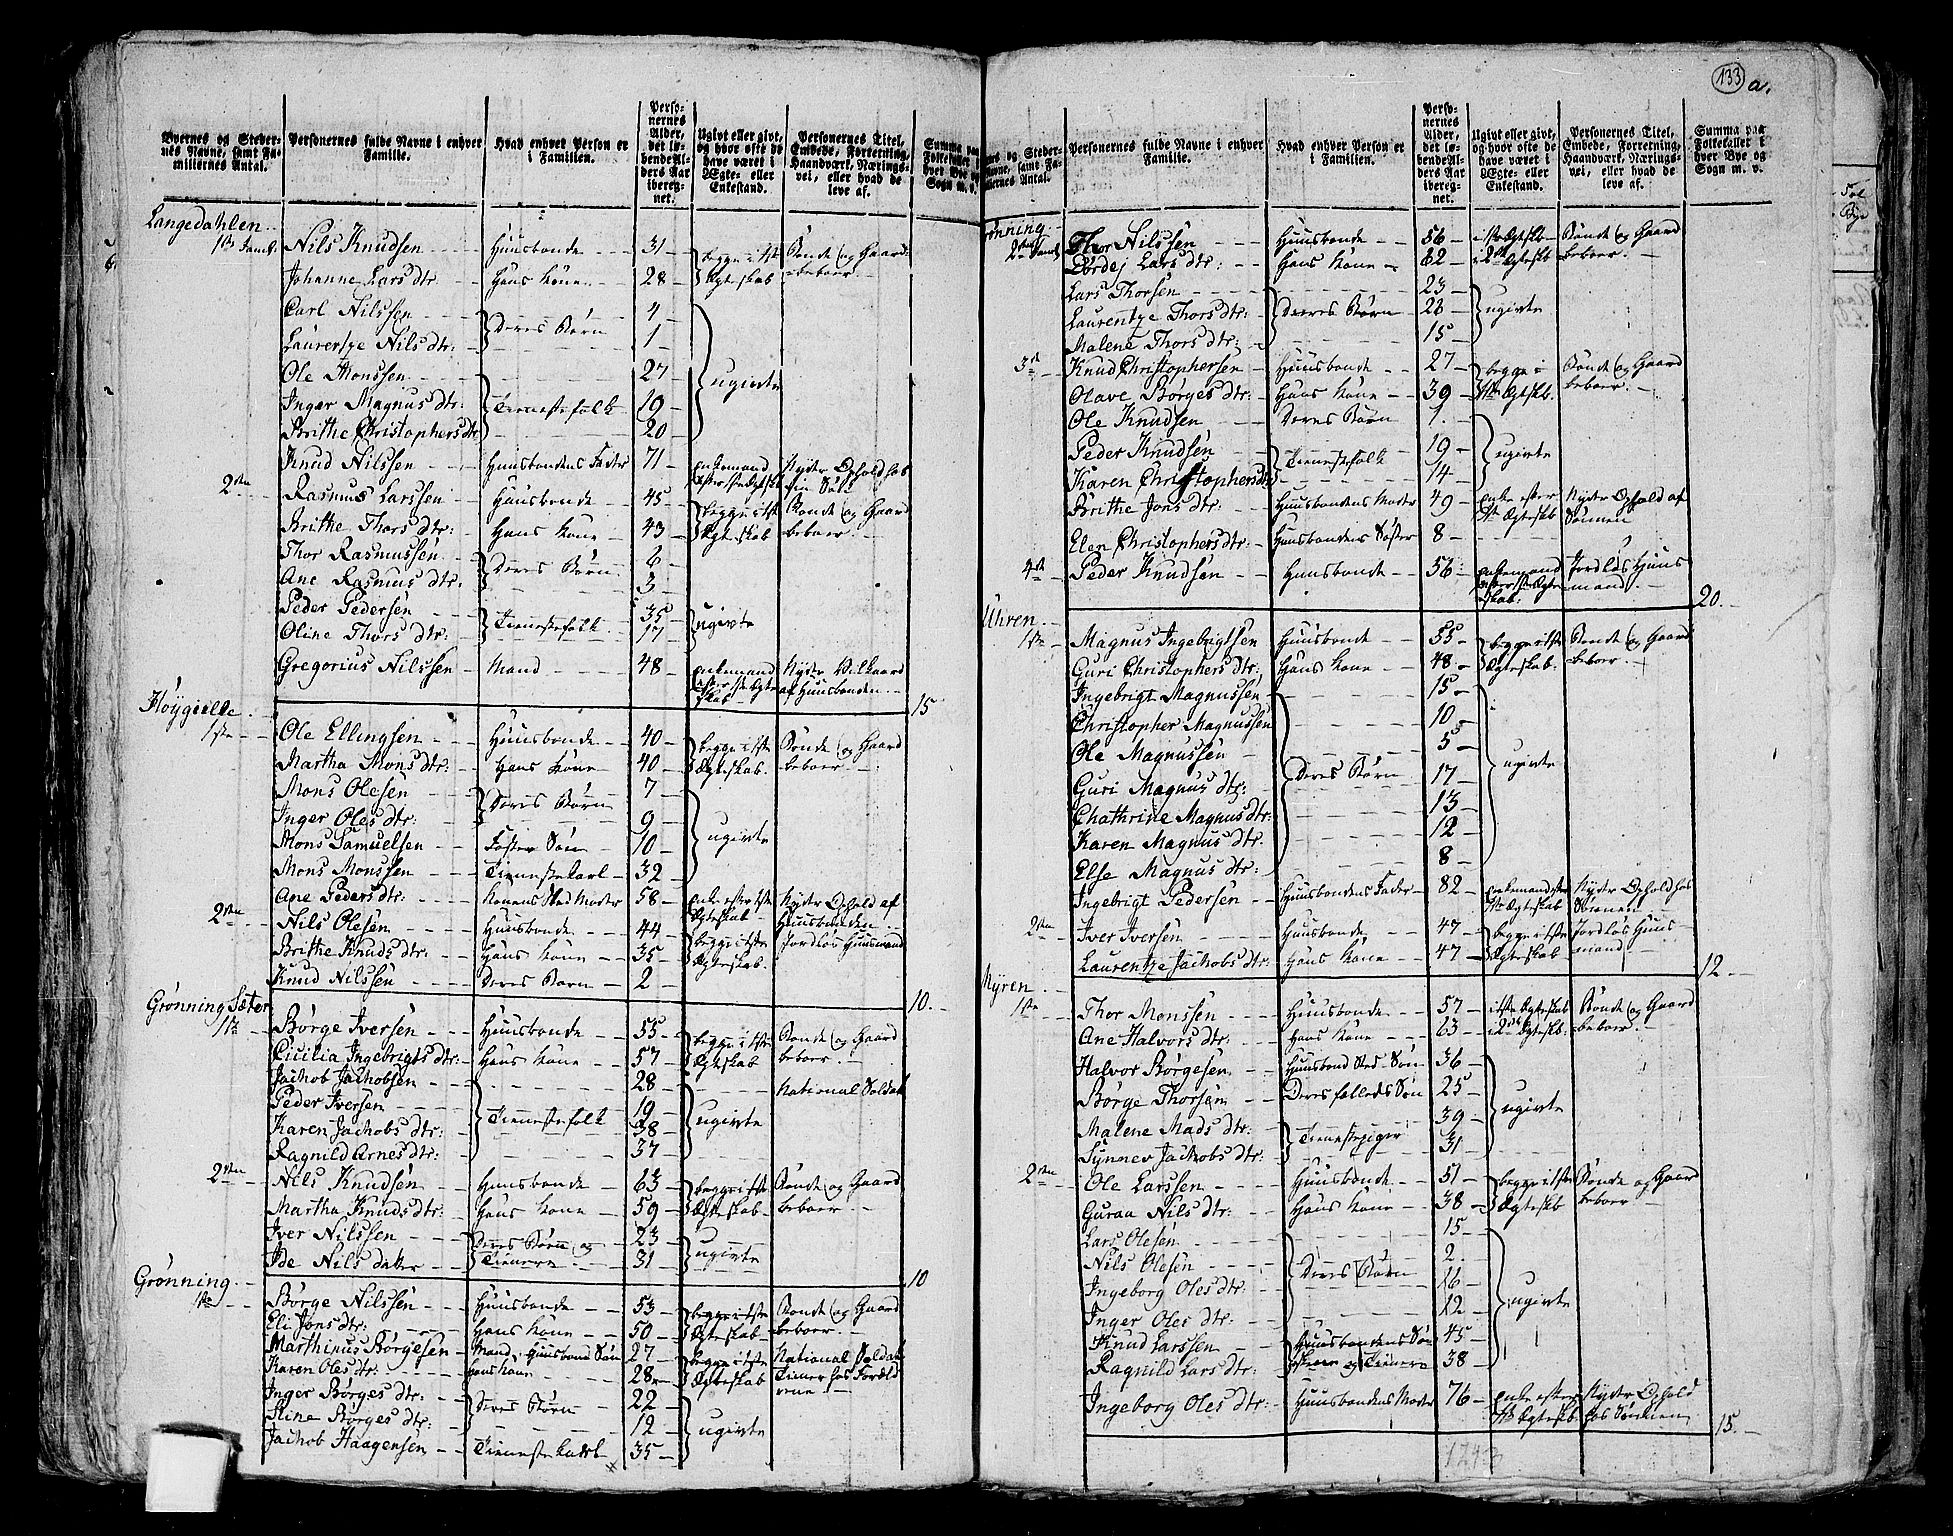 133 a.
Byernes og Stedernes Navne, samt Familiernes Antal.
Personernes fulde Navne i enhver Familie.
Hvad enhver Person er i Familien.
Personernes Alder, det løbende Alders Aar iberegnet.
Ugivt eller givt, og hvor ofte de have været i Ægte- eller Enkestand.
Personernes Titel, Embede, Forretning, Haandværk, Næringsvei, eller hvad de leve af.
Summa paa Folketallet i hver Bye og Sogn m. v.
Langedahlen
1ste Famil. Nils Knudsen Huusbonde 31 begge i 1ste Ægteskab Bonde og Gaardbeboer
Johanne Lars dtr: Hans Kone 28
Carl Nilssen Deres Børn 4 ugivte
Laurentze Nils dtr: 1
Ole Monssen Tienestefolk 27
Inger Magnus dtr: 19
Brithe Christophers dtr: 20
Knud Nilssen Huusbondens Fader 71 Enkemand efter 1ste Ægtesk. Nyder Ophold hos sin Søn
2den Rasmus Larssen Huusbonde 45 begge i 1ste Ægteskab Bonde og Gaardbeboer
Brithe Thors dtr: Hans Kone 43
Thor Rasmussen Deres Børn 6
Ane Rasmus dtr: 3
Peder Pedersen Tienestefolk 35 ugivte
Oline Thors dtr: 17
Gregorius Nilssen Mand 48 Enkemand efter 1ste Ægteskab Nyder Vilkaar af Huusbonden
15
Höygielle
1ste Ole Ellingsen Huusbonde 40 begge i 1ste Ægteskab Bonde og Gaardbeboer
Martha Mons dtr: Hans Kone 40
Mons Olesen Deres Børn 7 ugivte
Inger Oles dtr: 9
Mons Samuelsen Foster Søn 10
Mons Monssen Tienestekarl 32
Ane Peders dtr: Konens Sted Moder 58 Enke efter 1ste Ægteskab Nyder Ophold af Huusbonden
2den Nils Olesen Huusbonde 44 begge i 1ste Ægteskab Jordløs Huusmand
Brithe Knuds dtr: Hans Kone 35
Knud Nilssen Deres Barn 2
10
Grønning Sæter
1ste Børge Iversen Huusbonde 55 begge i 1ste Ægteskab Bonde og Gaardbeboer
Cicilia Ingebrigts dtr: Hans Kone 57
Jachob Jachobsen Tienestefolk 28 ugivte National Soldat
Peder Iversen 19
Karen Jachobs dtr: 38
Ragnild Arnes dtr: 37
2den Nils Knudsen Huusbonde 63 begge i 1ste Ægteskab Bonde og Gaardbeboer
Martha Knuds dtr: Hans Kone 59
Iver Nilssen Deres Børn og Tienere 23 ugivte
Ide Nils datter 31
10
Grønning
1ste Børge Nilssen Huusbonde 53 begge i 1ste Ægteskab Bonde og Gaardbeboer
Eli Jons dtr: Hans Kone 50
Marthinus Börgesen Mand, Huusbond Søn 27 begge i 1ste Ægteskab National Soldat Tiener hos Forældrene
Karen Oles dtr: Hans Kone 28
Inger Börges dtr: Deres Børn 22 ugivte
Stine Börges dtr: 12
Jachob Haagensen Tienestekarl 35
Grönning
2den Famil. Thor Nilssen Huusbonde 56 i 1ste Ægteskb Bonde og Gaardbeboer
Lars dtr: Hans Kone 62 i 2det Ægteskb
Lars Thorsen Deres Børn 23 ugivte
Laurentze Thors dtr: 28
Malene Thors dtr: 15
3de Knud Christophersen Huusbonde 27 begge i 1ste Ægteskb. Bonde og Gaardbeboer
Olave Børges dtr: Hans Kone 39
Ole Knudsen Deres Børn 1 ugivte
Peder Knudsen Tienestefolk 19
Karen Christophers dtr: 14
Brithe Jons dtr: Huusbondens Moder 49 Enke efter 1ste Ægteskb Nyder Ophold af Sønnen
Elen Christophers dtr: Huusbondens Søster 8
4de Peder Knudsen Huusbonde 56 Enkemand efter 1ste Ægteskab. Jordløs Huusmand
20
Uhren
1ste Magnus Ingebrigtsen Huusbonde 55 begge i 1ste Ægteskab. Bonde og Gaardbeboer
Guri Christophers dtr: Hans Kone 48
Ingebrigt Magnussen Deres Børn 15 ugivte
Christopher Magnussen 10
Ole Magnussen 5
Guri Magnus dtr: 17
Chathrine Magnus dtr: 13
Karen Magnus dtr: 12
Else Magnus dtr: 8
Ingebrigt Pedersen Huusbondens Fader 82 Enkemand efter 1ste Ægteskab Nyder Ophold hos Sønnen
2den Iver Iversen Huusbonde 47 begge i 1ste Ægteskab Jordløs Huusmand
Laurentze Jachobs dtr: Hans Kone 47
12
Myren
1ste Thor Monssen Huusbonde 57 i 1ste Ægteskab Bonde og Gaardbeboer
Ane Halvors dtr: Hans Kone 63 i 2det Ægteskb:
Halvor Børgesen Huusbond Sted Søn 36 ugivte
Børge Thorsen Deres fælleds Søn 25
Malene Mads dtr: Tienestepiger 39
Synnev Jachobs dtr: 31
2den Ole Larssen Huusbonde 51 begge i 1ste Ægteskb Bonde og Gaardbeboer
Guraa Nils dtr: Hans Kone 38
Lars Olesen Deres Børn 15 ugivte
Nils Olesen 2
Ingeborg Oles dtr: 16
Inger Oles dtr: 12
Knud Larssen Huusbondens Søskende og Tienere 45
Ragnild Lars dtr: 38
Ingeborg Oles dtr: Huusbondens Moder 76 Enke efter 1ste Ægteskb Nyder Ophold hos Sønnen
15